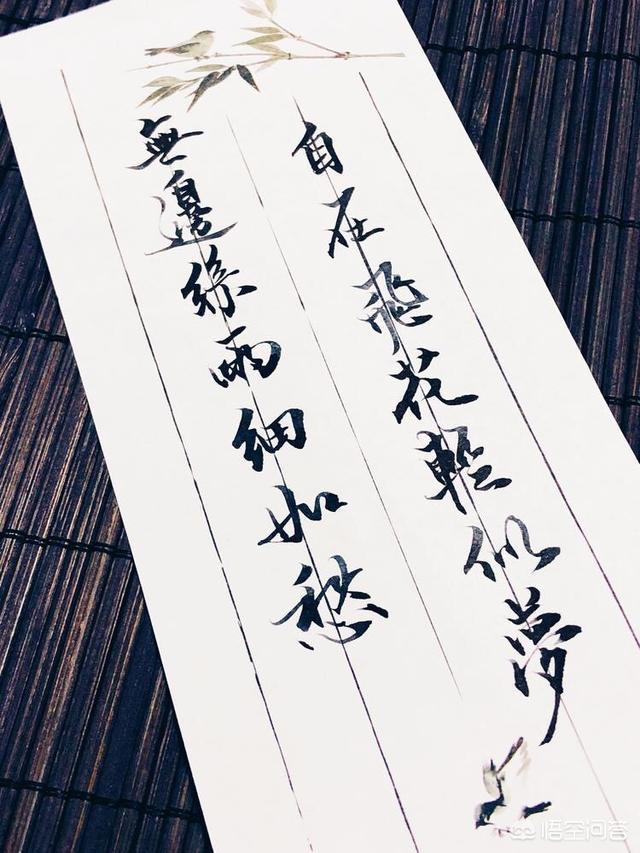 自在飛花輕似夢
無邊絲雨細如愁
悟空问答